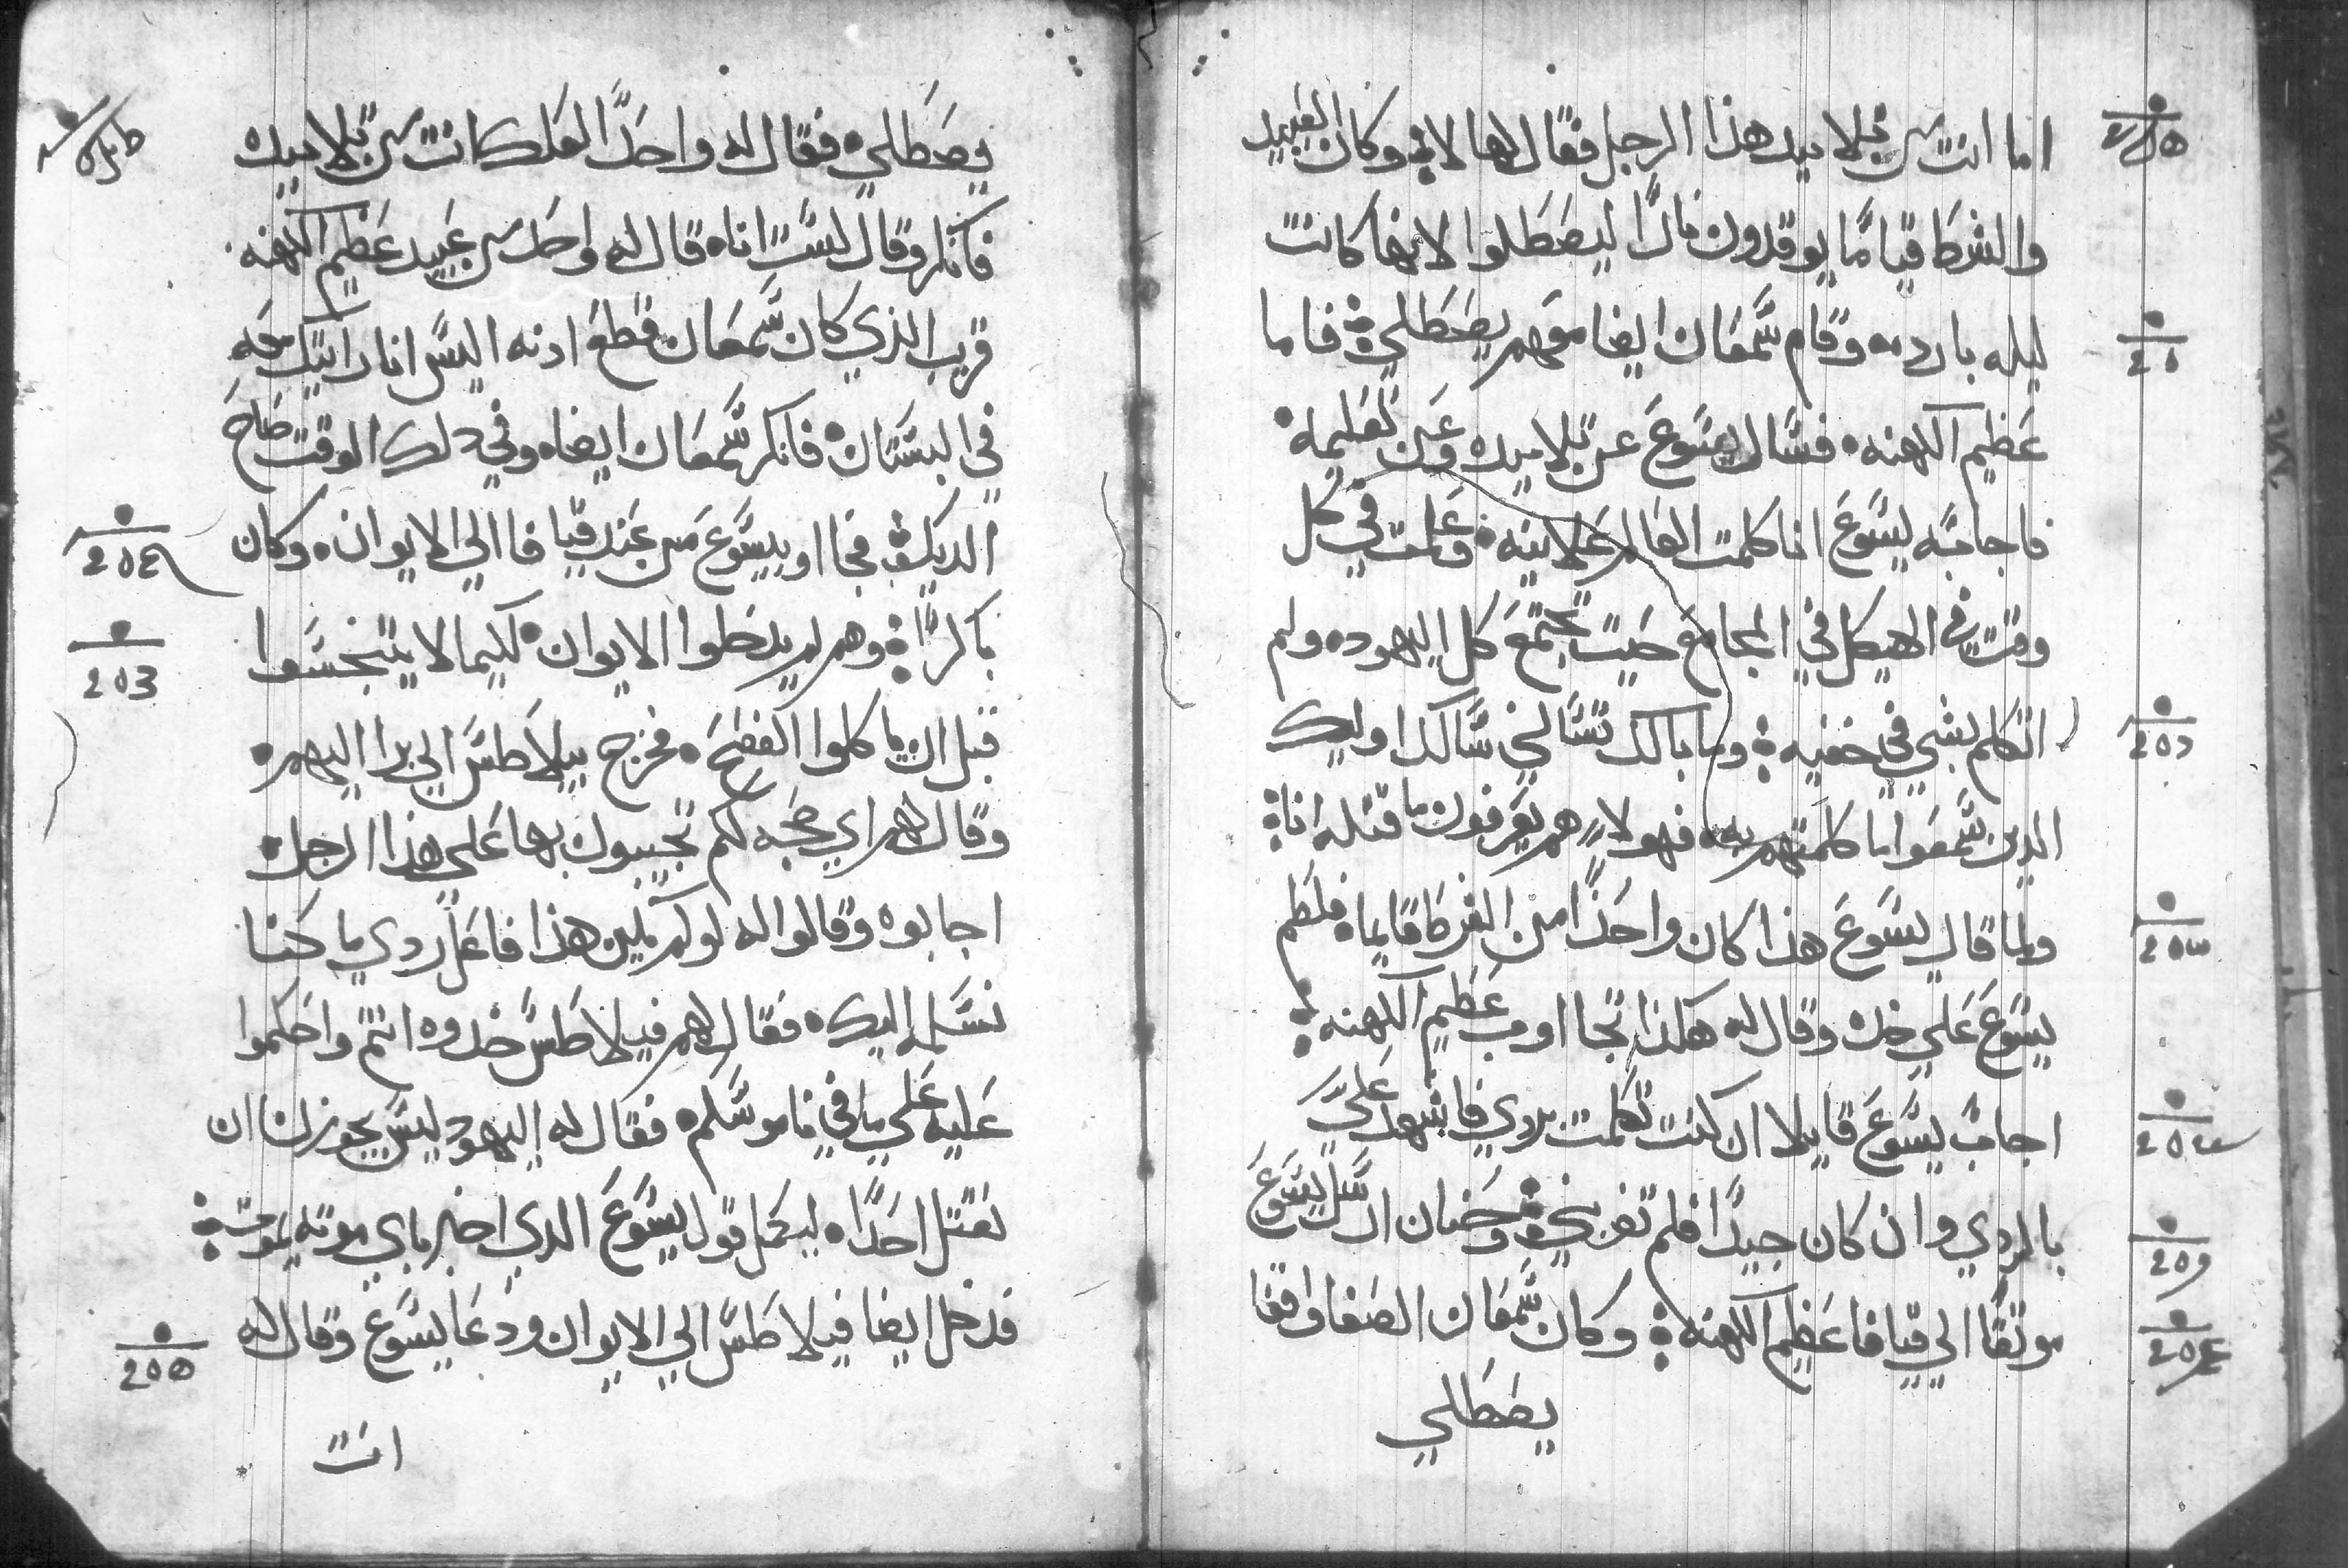 اما انت من تلاميد هذا الرجل فقال لها لا وكان العبيد
والشرط قياما يوقدون نارا ليصطلوا لانها كانت
ليله بارده وقام سمعان ايضا معهم يصطلي فاما
عظيم الكهنه فسال يسوع عن تلاميده وعن تعليمه
فاجابه يسوع انا كلمت العالم علانيه وعلمت في كل
وقت في الهيكل في المجامع حيت يجتمع كل اليهود ولم
اتكلم بشي في خفيه وما بالك تسالني سال اوليك
الدين سمعوا ما كلمتهم به فهولا هم يعرفون ما قتله انا
ولما قال يسوع هذا كان واحدا من الشرط قايما فلطم
يسوع علي خده وقال له هكذا تجااوب عظيم الكهنه
اجاب يسوع قايلا ان كنت تكلمت بردي فاشهد علي
بالردي وان كان جيدا فلم تضربني وحنان ارسل يسوع
موتقا الي قيافا عظيم الكهنه وكان سمعان الصفا واقفا
يصطلي
يصطلي فقال له واحدا لعلك انت من تلاميده
فانكر وقال لست انا قال له واحد من عبيد عظيم الكهنه
قريب الذي كان سمعان قطع ادنه اليس انا رايتك معه
في البستان فانكر سمعان ايضا وفي دلك الوقت صاح
الديك فجااو بيسوع من عند قيافا الي الايوان وكان
باكرا وهم لم يدخلوا الايوان لكيما لا يتنجسوا
قبل ان ياكلوا الفصح فخرج بيلاطس الي برا اليهم
وقال لهم اي حجه لكم تجيبون بها علي هذا الرجل
اجابوه وقالوا له لو لم يكن هذا فاعل ردي ما كنا
نسلم اليك فقال لهم فيلاطس خدوه انتم واحكموا
عليه علي ما في ناموسكم فقال له اليهود ليس يجوز لنا ان
نقتل احدا ليكمل قول يسوع الدي اخبر باي موته يموت
فدخل ايضا فيلاطس الي الايوان ودعا يسوع وقال له
انت